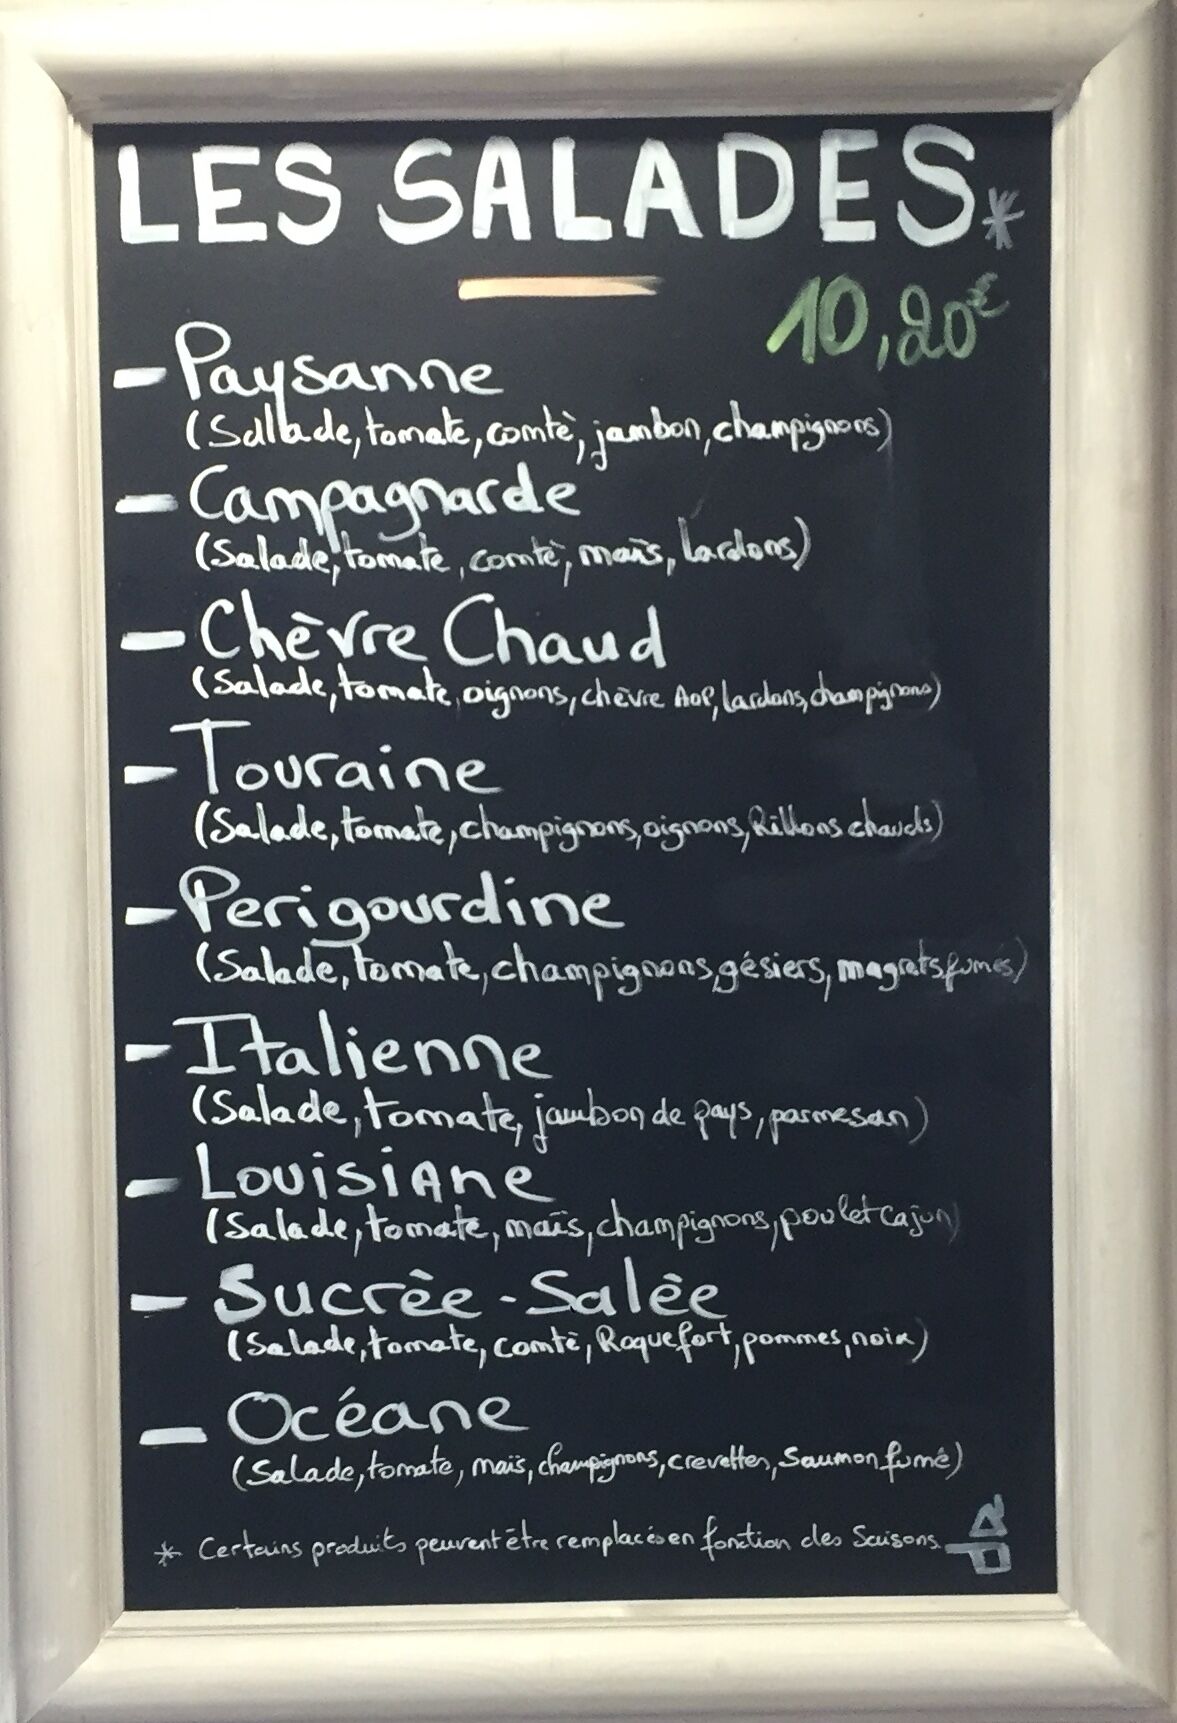 LES SALADES*
10,20€
- Paysanne
(Sallade, tomate, comtè, jambon, champignons)
- Campagnarde
(Salade, tomate, comtè, maïs, lardons)
- Chèvre Chaud
(Salade, tomate, oignons, chèvre AOP, lardons, champignons)
- Touraine
(Salade, tomate, champignons, oignons, Rillons chauds)
- Perigourdine
(Salade, tomate, champignons, gésiers, magrets fumés)
- Italienne
(Salade, tomate, jambon de pays, parmesan)
- LouisiAne
(Salade, tomate, maïs, champignons, poulet cajun)
- Sucrèe - Salèe
(Salade, tomate, comtè, Roquefort, pommes, noix)
- Océane
(Salade, tomate, maïs, champignons, crevettes, Saumon fumé)
* Certains produits peuvent être remplacés en fonction des Saisons